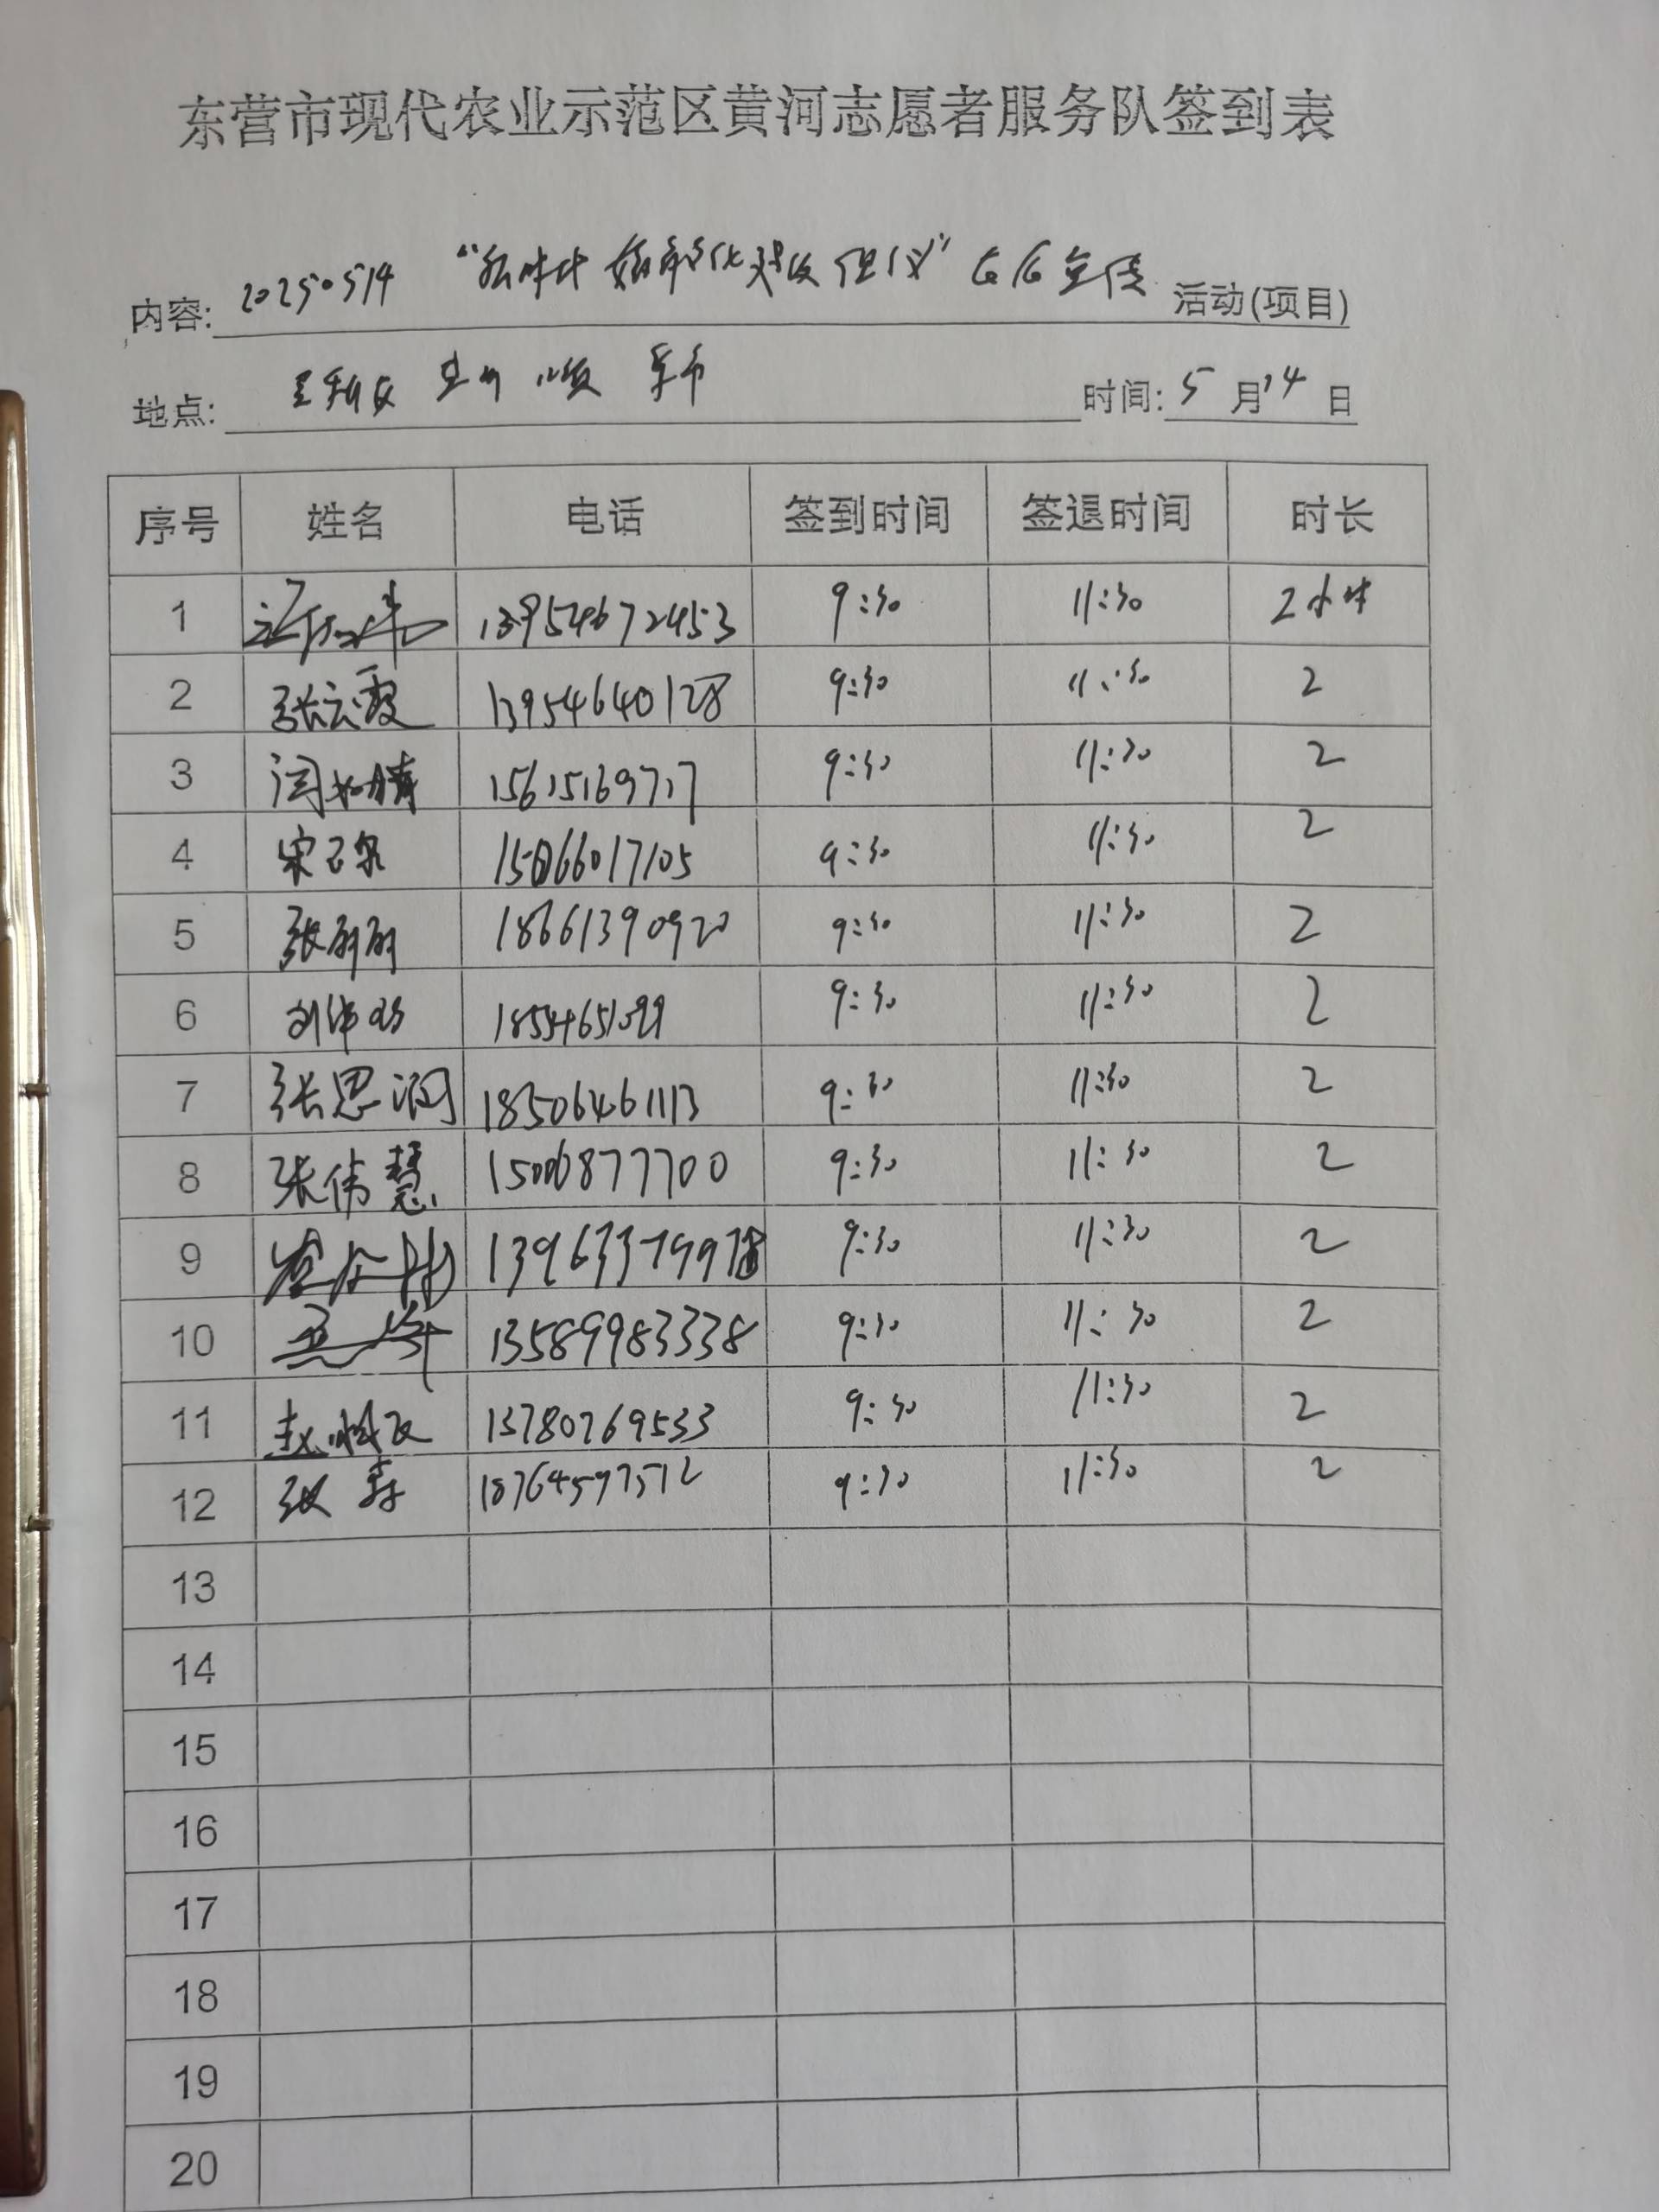 东营市现代农业示范区黄河志愿者服务队签到表
内容: 20250514 宣传 活动(项目)
地点: 时间: 5 月 14 日
序号 姓名 电话 签到时间 签退时间 时长
1 13954672453 9:30 11:30 2小时
2 张云霞 13954640128 9:30 11:30 2
3 闫如晴 15615169717 9:30 11:30 2
4 宋 15066017105 9:30 11:30 2
5 张丽丽 18661390920 9:30 11:30 2
6 刘 9:30 11:30 2
7 张思润 18506461113 9:30 11:30 2
8 张伟慧 15006877700 9:30 11:30 2
9 9:30 11:30 2
10 13589983338 9:30 11:30 2
11 赵 13780769533 9:30 11:30 2
12 张森 18764597572 9:30 11:30 2
13
14
15
16
17
18
19
20